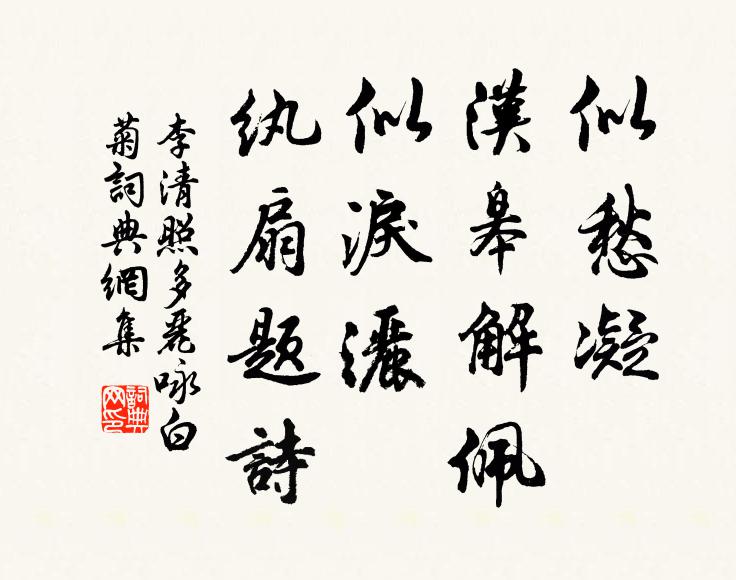 似愁凝
漢皋解佩
似淚灑
紈扇題詩
李清照多麗咏白
菊詞典網集
詞典網印